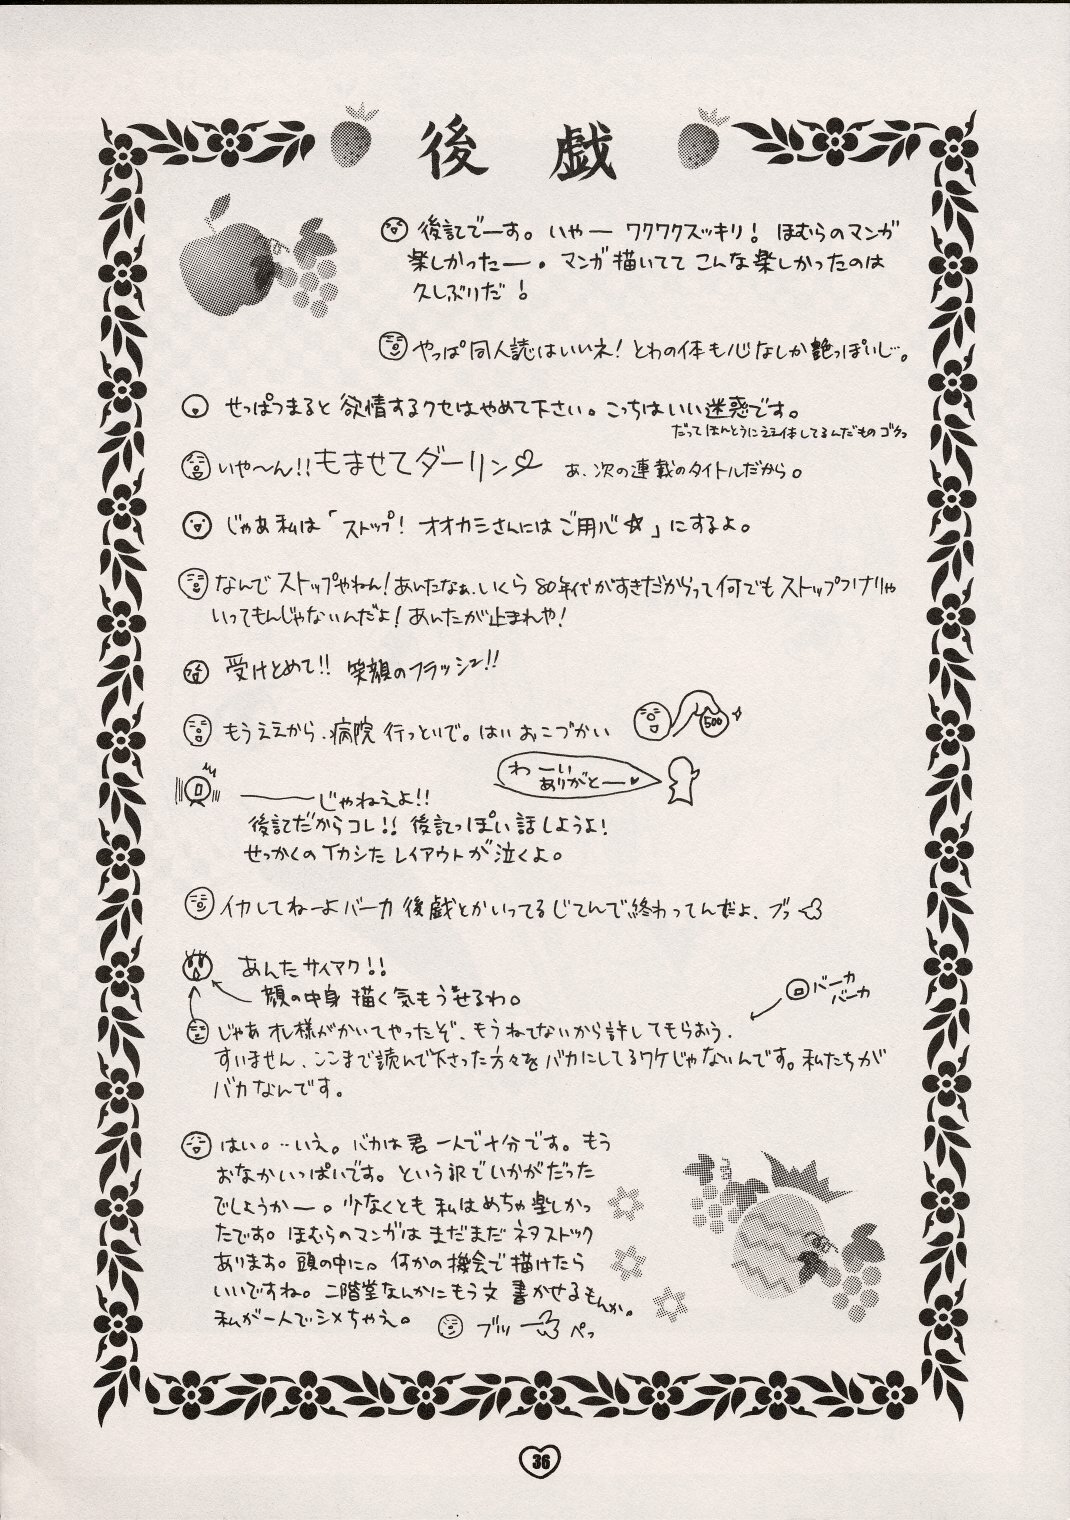 後戯
後記でーす。いやー ワクワクスッキリ! ほむらのマンガ
楽しかったー。マンガ描いてて こんな楽しかったのは
久しぶりだ!
やっぱ同人誌はいいネ! とわの体も心なしか艶っぽいし。
せっぱつまると欲情するクセはやめて下さい。こっちはいい迷惑です。
だってほんとうにええ体してるんだもの ゴクっ
いや〜ん!!もませてダーリン♡ あ、次の連載のタイトルだから。
じゃあ私は「ストップ! オオカミさんにはご用心☆」にするよ。
なんでストップやねん!あんたなぁ、いくら80年代がすきだからって何でもストップつけりゃ
いいってもんじゃないんだよ!あんたが止まれや!
受けとめて!! 笑顔のフラッシュ!!
もうええから、病院行っといで。はい おこづかい
500
わーい
ありがとー♥
――じゃねえよ!!
後記だからコレ!! 後記っぽい話しようよ!
せっかくのイカシたレイアウトが泣くよ。
イカしてねーよバーカ 後戯とかいってるじてんで終わってんだよ、プっ
あんたサイアク!!
顔の中身描く気もうせるわ。
バーカ
バーカ
じゃあオレ様がかいてやったぞ、もうねてないから許してもらおう。
すいません、ここまで読んで下さった方々をバカにしてるワケじゃないんです。私たちが
バカなんです。
はい。…いえ。バカは君一人で十分です。もう
おなかいっぱいです。という訳でいかがだった
でしょうかー。少なくとも私はめちゃ楽しかっ
たです。ほむらのマンガはまだまだネタストック
あります。頭の中に。何かの機会で描けたら
いいですね。二階堂なんかにもう文書かせるもんか。
私が一人でシメちゃえ。 ブッ ペっ
36